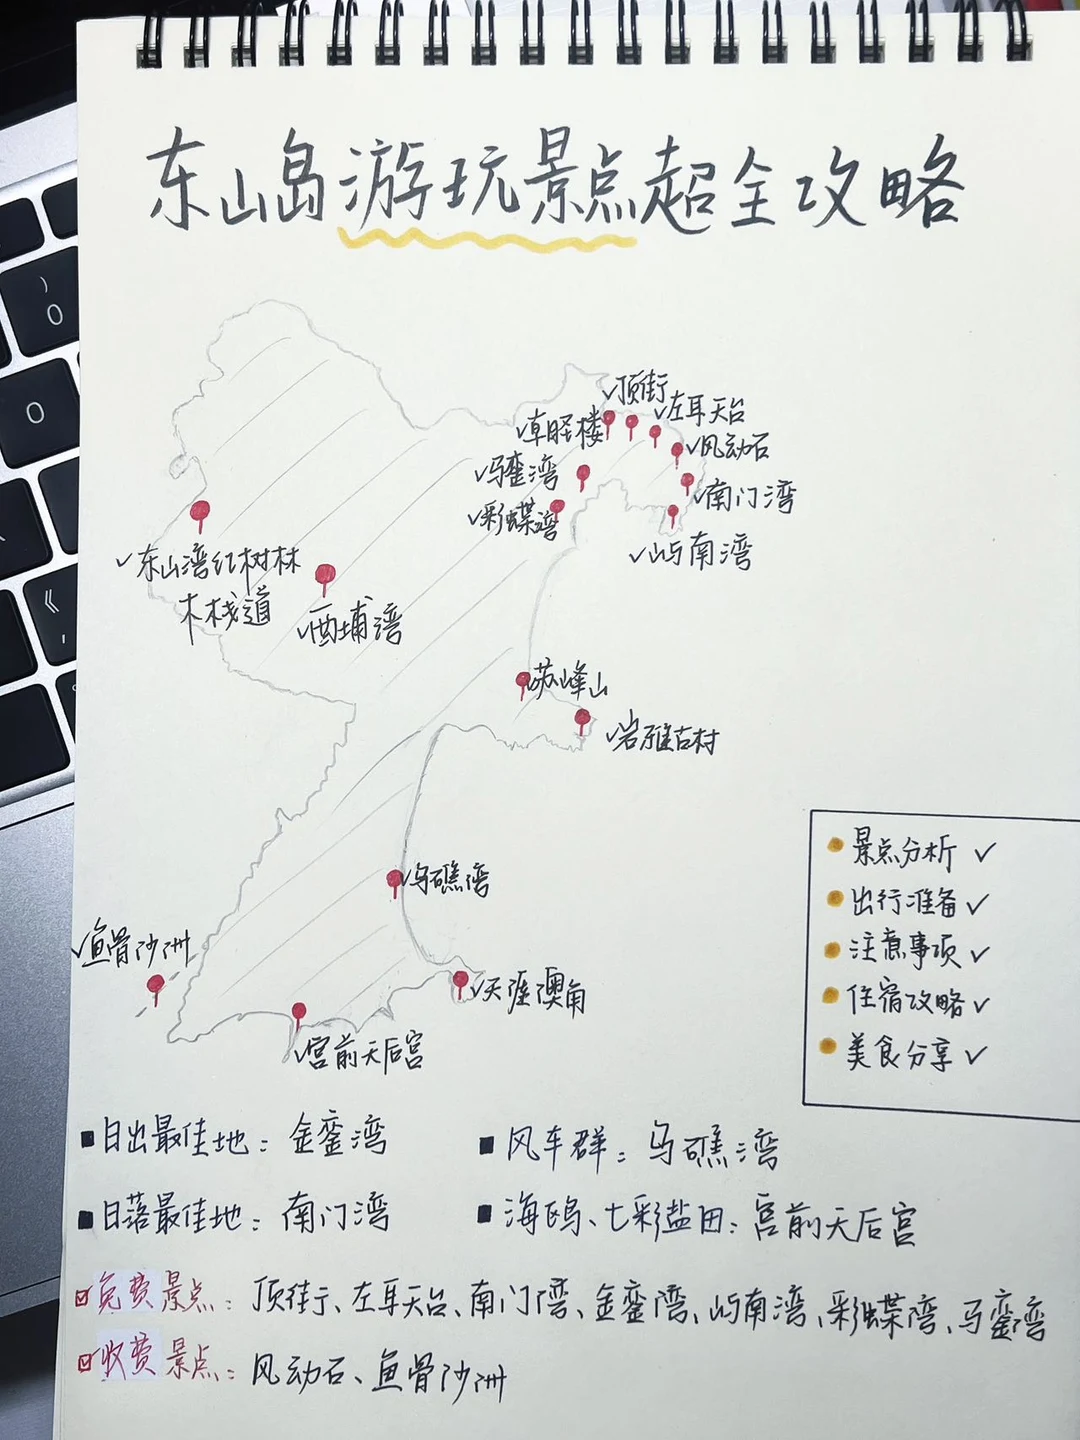 东山岛游玩景点超全攻略
✓顶街
✓左耳天台
✓卓旺楼
✓风动石
✓马銮湾
✓南门湾
✓彩蝶湾
✓屿南湾
✓东山湾红树林
木栈道
✓西埔湾
✓苏峰山
✓岩雅古村
✓乌礁湾
✓鱼骨沙洲
✓天涯澳角
✓宫前天后宫
景点分析 ✓
出行准备 ✓
注意事项 ✓
住宿攻略 ✓
美食分享 ✓
日出最佳地：金銮湾
风车群：乌礁湾
日落最佳地：南门湾
海鸥、七彩盐田：宫前天后宫
免费景点：顶街、左耳天台、南门湾、金銮湾、屿南湾、彩蝶湾、马銮湾
收费景点：风动石、鱼骨沙洲